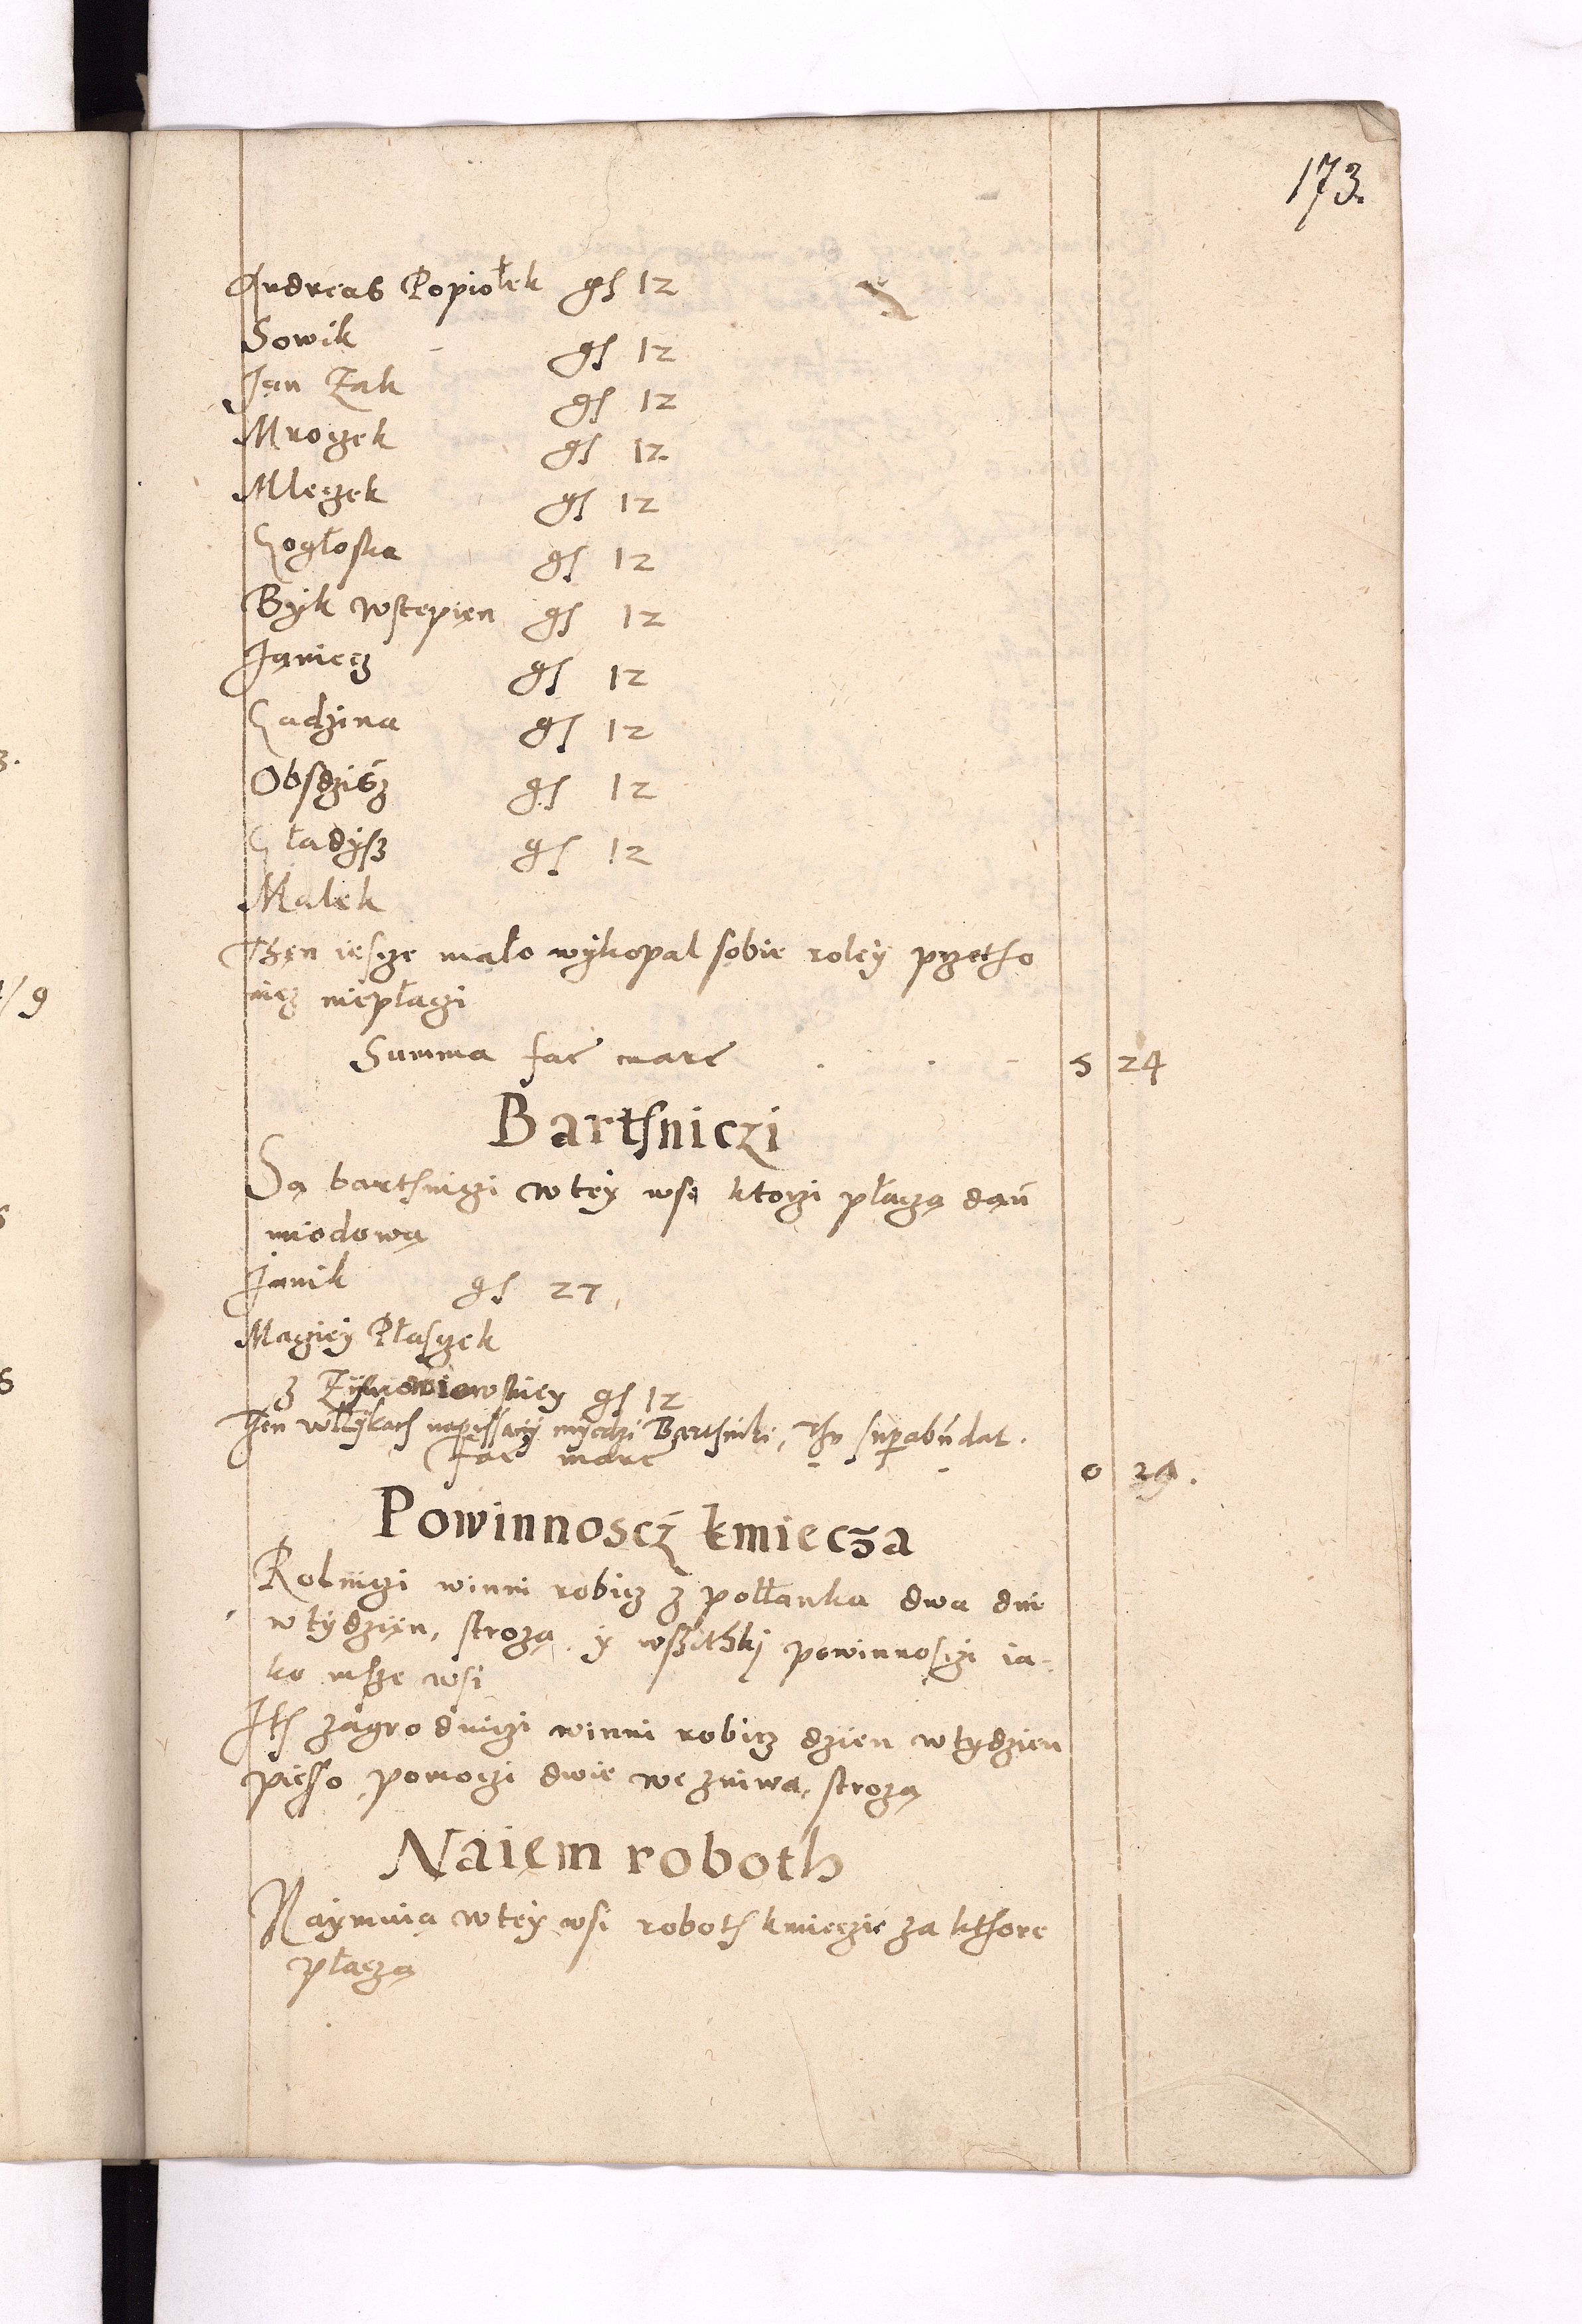 173.
Andreas Popiołek gs 12
Sowik gs 12
Jan Zak gs 12
Mroczek gs 12.
Mleczek gs 12
Gogłoska gs 12
Byk Wstepien gs 12
Janiecz gs 12
Gadzina gs 12
Obsdzicz gs 12
Gładysz gs 12
Malek
Then iescze mało wykopal sobie roley przetho
nicz niepłaczi
Summa fac marc 5 24
Barthniczi
Są barthniczi w tey wsi ktorzi płaczą dań
miodową
Janik gs 27
Maciey Płaszek
gs 12
Ten napissany miedzi Barthniki, superabundat.
fac marc 0 29.
Powinnoscź kmiecza
Robniczi winni robicz z połłanka dwa dni
w tydzień, strożą, y wszithki powinnosczi ia-
ko insze wsi
Ith zagrodniczi winni robicz dzien w tydzien
piesso, pomoczi dwie we zniwa, strożą
Naiem roboth
Naymuią w tey wsi roboth kmieczie za kthore
płaczą